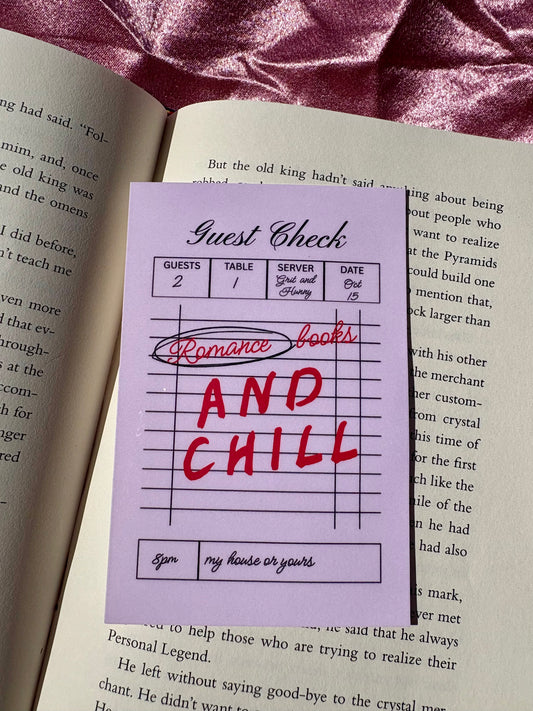 ng had said. "Fol-
mim, and, once
e old king was
and the omens
I did before,
n't teach me
ven more
d that ev-
hrough-
s at the
ccom-
h for
nger
red
But the old king hadn't said anything about being
bout people who
want to realize
at the Pyramids
could build one
mention that,
ock larger than
with his other
the merchant
her custom-
from crystal
his time of
for the first
ch like the
mile of the
en he had
had also
s mark,
ver met
to help those who are trying to realize their
, he said that he always
Personal Legend.
He left without saying good-bye to the crystal mer-
chant. He didn't want to
Guest Check
GUESTS TABLE SERVER DATE
2 1 Grit and Hunny Oct 15
Romance books
AND
CHILL
8pm my house or yours